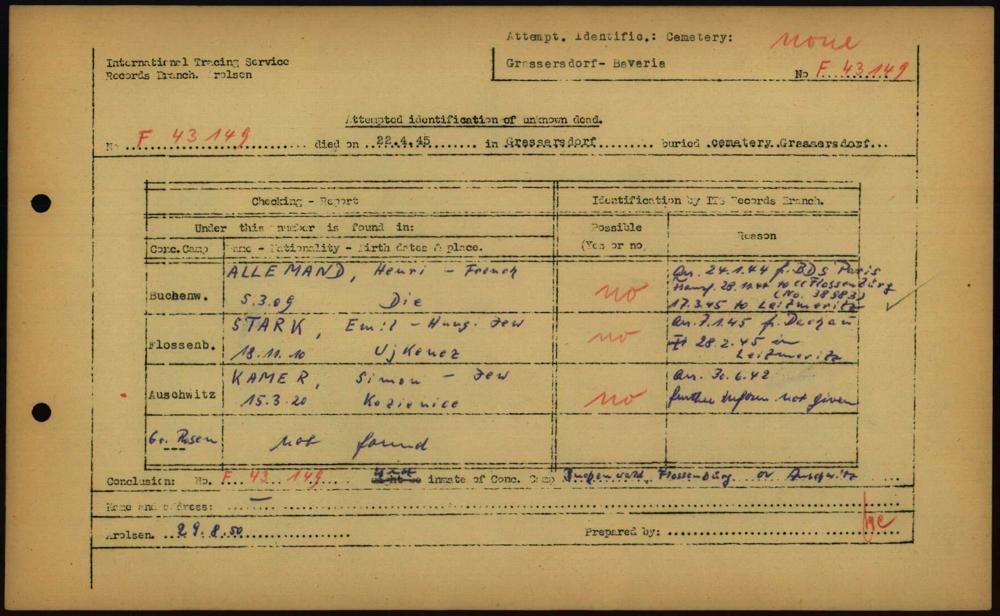 Attempt. Identific.: Cemetery: none
Grassersdorf- Bavaria
No F 43149
International Tracing Service
Records Branch. Arolsen
Attempted identification of unknown dead.
No F 43 149 died on 22.4.45 in Grassersdorf buried cemetery Grassersdorf
Checking - Report
Identification by ITS Records Branch.
Under this number is found in:
Possible
(Yes or no)
Reason
Conc. Camp
Name - Nationality - Birth dates & place.
Buchenw.
ALLEMAND, Henri - French
5.3.09 Die
no
arr. 24.1.44 fr. BDS Paris
Transf. 28.11.44 to CC Flossenbürg
(No. 38583)
17.3.45 to Leitmeritz
Flossenb.
STARK, Emil - Hung. Jew
18.11.10 Uj Kenez
no
arr. 7.1.45 fr. Dachau
28.2.45 in
Leitmeritz
Auschwitz
KAMER, Simon - Jew
15.3.20 Kozienice
no
arr. 30.6.42
further inform not given
Gr. Rosen
not found
Conclusion: No. F. 43 149 inmate of Conc. Camp Buchenwald, Flossenbürg or Auschwitz
Name and address: —
Arolsen. 29.8.50
Prepared by: